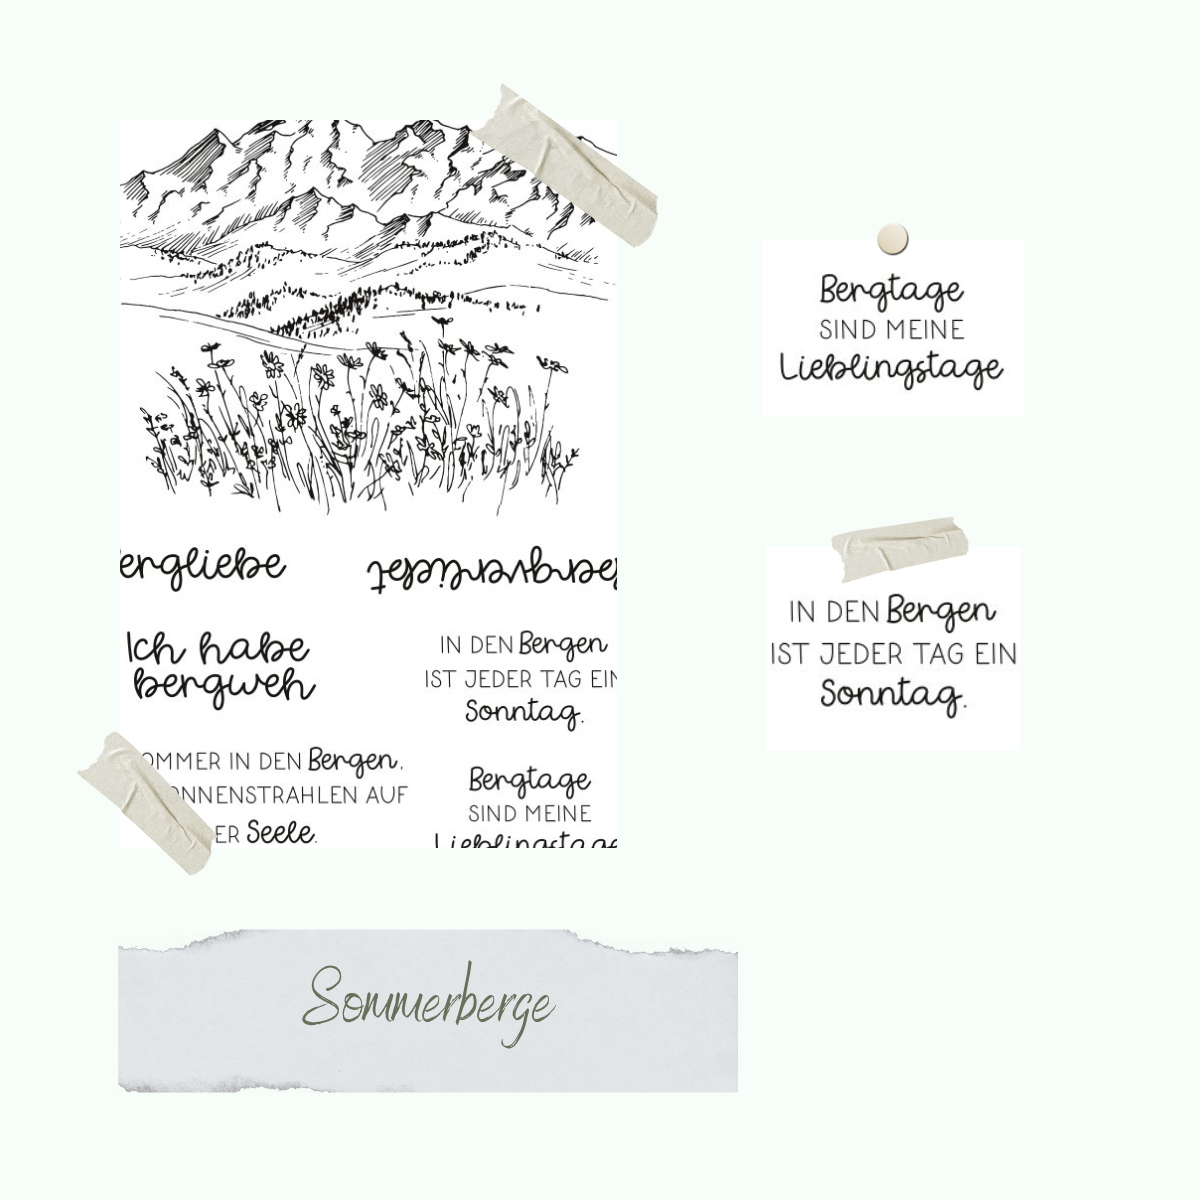 ergliebe
Ich habe
bergweh
IN DEN Bergen
IST JEDER TAG EIN
Sonntag.
OMMER IN DEN Bergen.
ONNENSTRAHLEN AUF
ER Seele.
Bergtage
SIND MEINE
Lieblingstage
Bergtage
SIND MEINE
Lieblingstage
IN DEN Bergen
IST JEDER TAG EIN
Sonntag.
Sommerberge